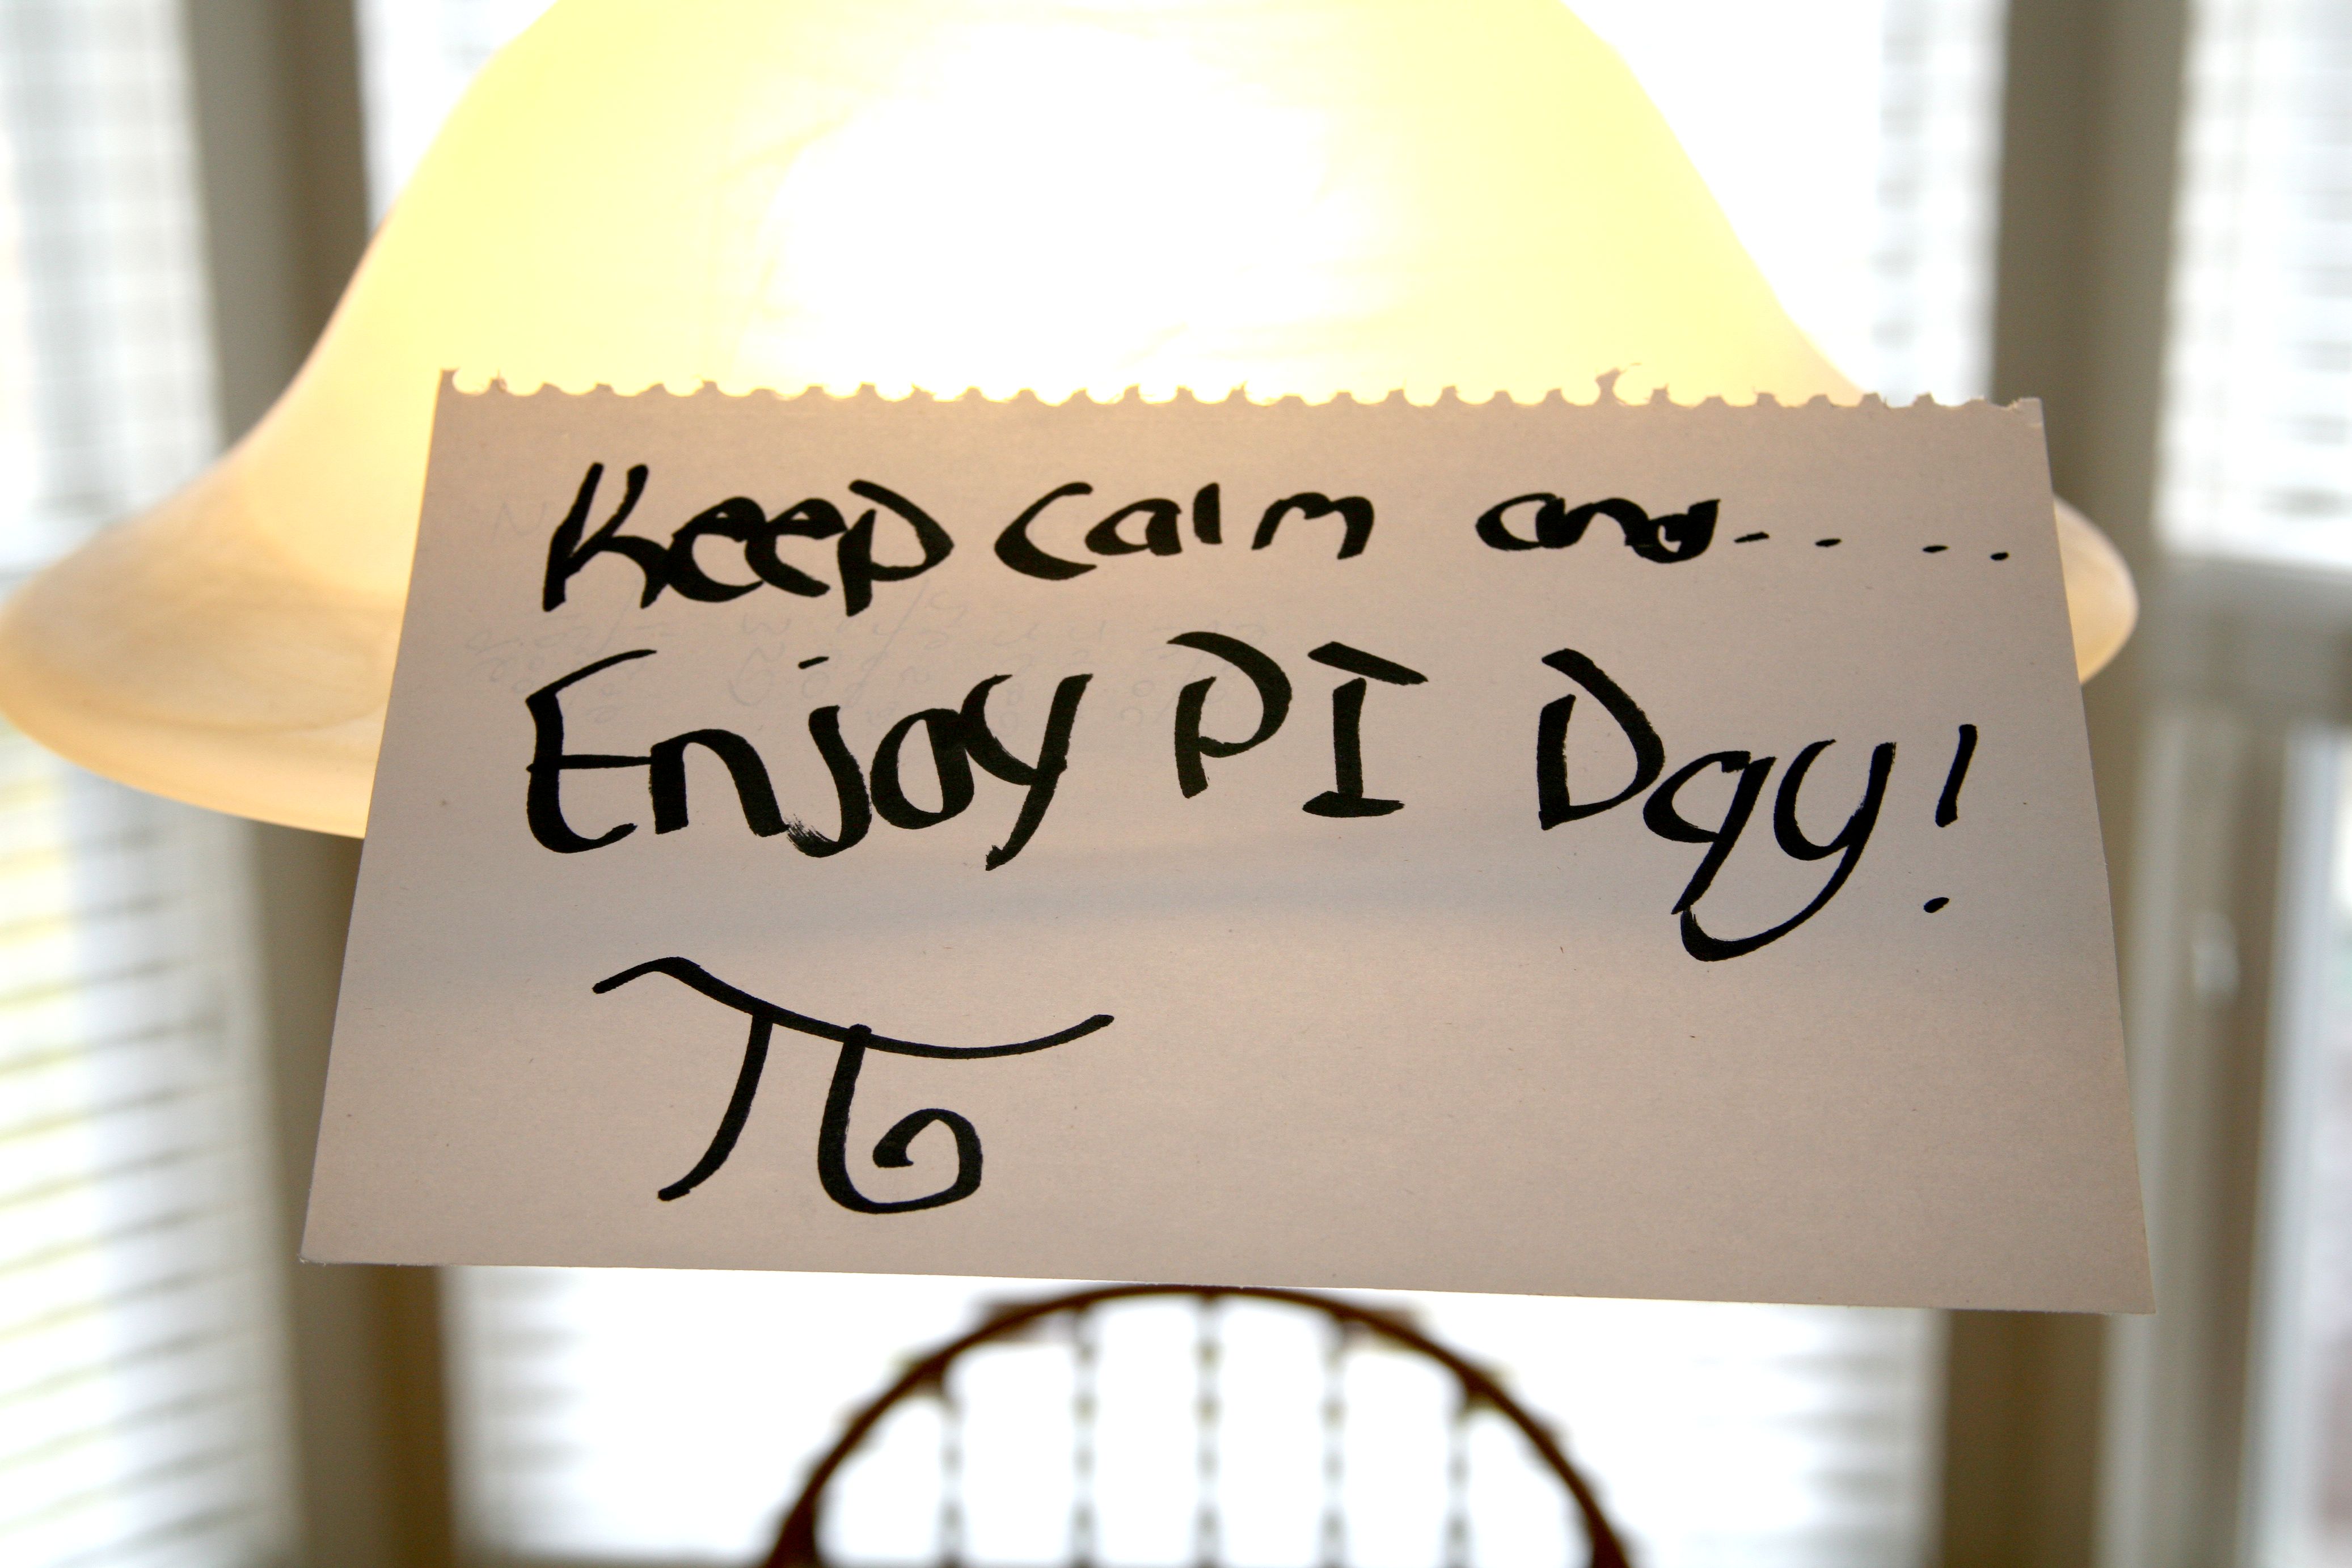 Keep calm and.. ..
Enjoy PI Day!
π